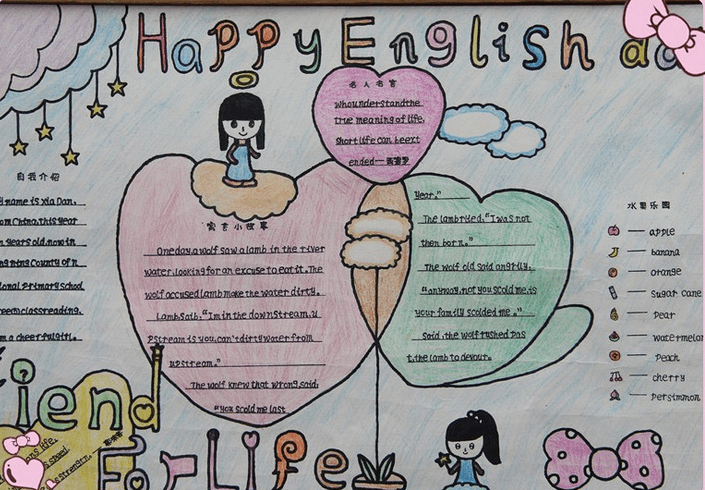 Happy English
名人名言
Whounderstandthe
true meaning of life,
Short life can beext
ended—西塞罗
自我介绍
name is Xia Dan.
om China.this year
years old.now in
primary school
reading.
m a cheerful girl.
寓言小故事
Oneday,a wolf saw a lamb in the river
water,looking for an excuse to eat it. The
wolf accused lamb make the water dirty.
Lamb saib."Im in the downstream.u
pstream is you,can't dirty water from
upstream."
The wolf knew that wrong,said:
"you scold me last
year."
The lamb ried. "I was not
then born."
The wolf old said angrily,
"anyway,not you scold me,is
your family scolded me."
Said ,the wolf rushed pas
t,the lamb to devour.
水果乐园
apple
banana
orange
Sugar cane
Pear
watermelon
Peach
cherry
Persimmon
iend
For Life